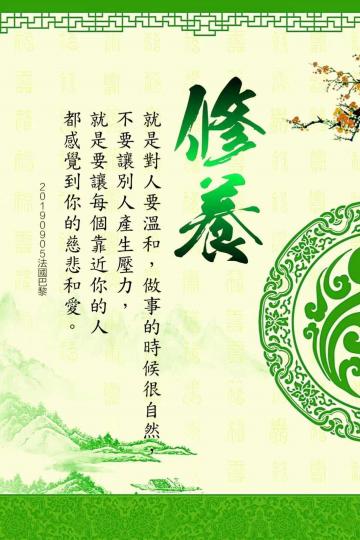 修養
就是對人要溫和，做事的時候很自然，
不要讓別人產生壓力，
就是要讓每個靠近你的人
都感覺到你的慈悲和愛。
20190905法國巴黎